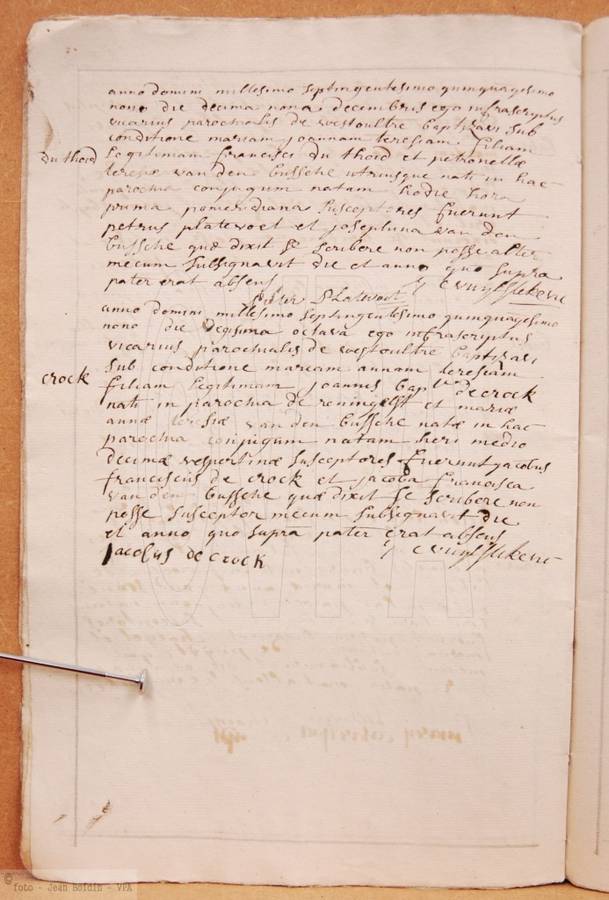 anno domini millesimo septingentesimo quinquagesimo
nono die decima nona decembris ego infrascriptus
vicarius parochialis de westoultre baptizavi sub
conditione mariam joannam teresiam filiam
du thoid legitimam francisci du thoid et petronellæ
teresiæ van den bussche utriusque nati in hac
parochia conjugum natam hodie hora
prima pomeridiana susceptores fuerunt
petrus platevoet et josephina van den
bussche quæ dixit se scribere non posse alter
mecum subsignavit die et anno quo supra
pater erat absens
anno domini millesimo septingentesimo quinquagesimo
nono die vegisima octava ego infrascriptus
vicarius parochialis de westoultre baptizavi
sub conditione mariam annam teresiam
crock filiam legitimam joannis bap decrock
nati in parochia de reningelst et mariæ
annæ teresiæ van den bussche natæ in hac
parochia conjugum natam heri medio
decimæ vespertinæ susceptores fuerunt jacobus
franciscus de crock et jacoba francisca
van den bussche quæ dixit se scribere non
posse susceptor mecum subsignavit die
et anno quo supra pater erat absens
jacobus de crock
© foto - Jean Boidin - VPA